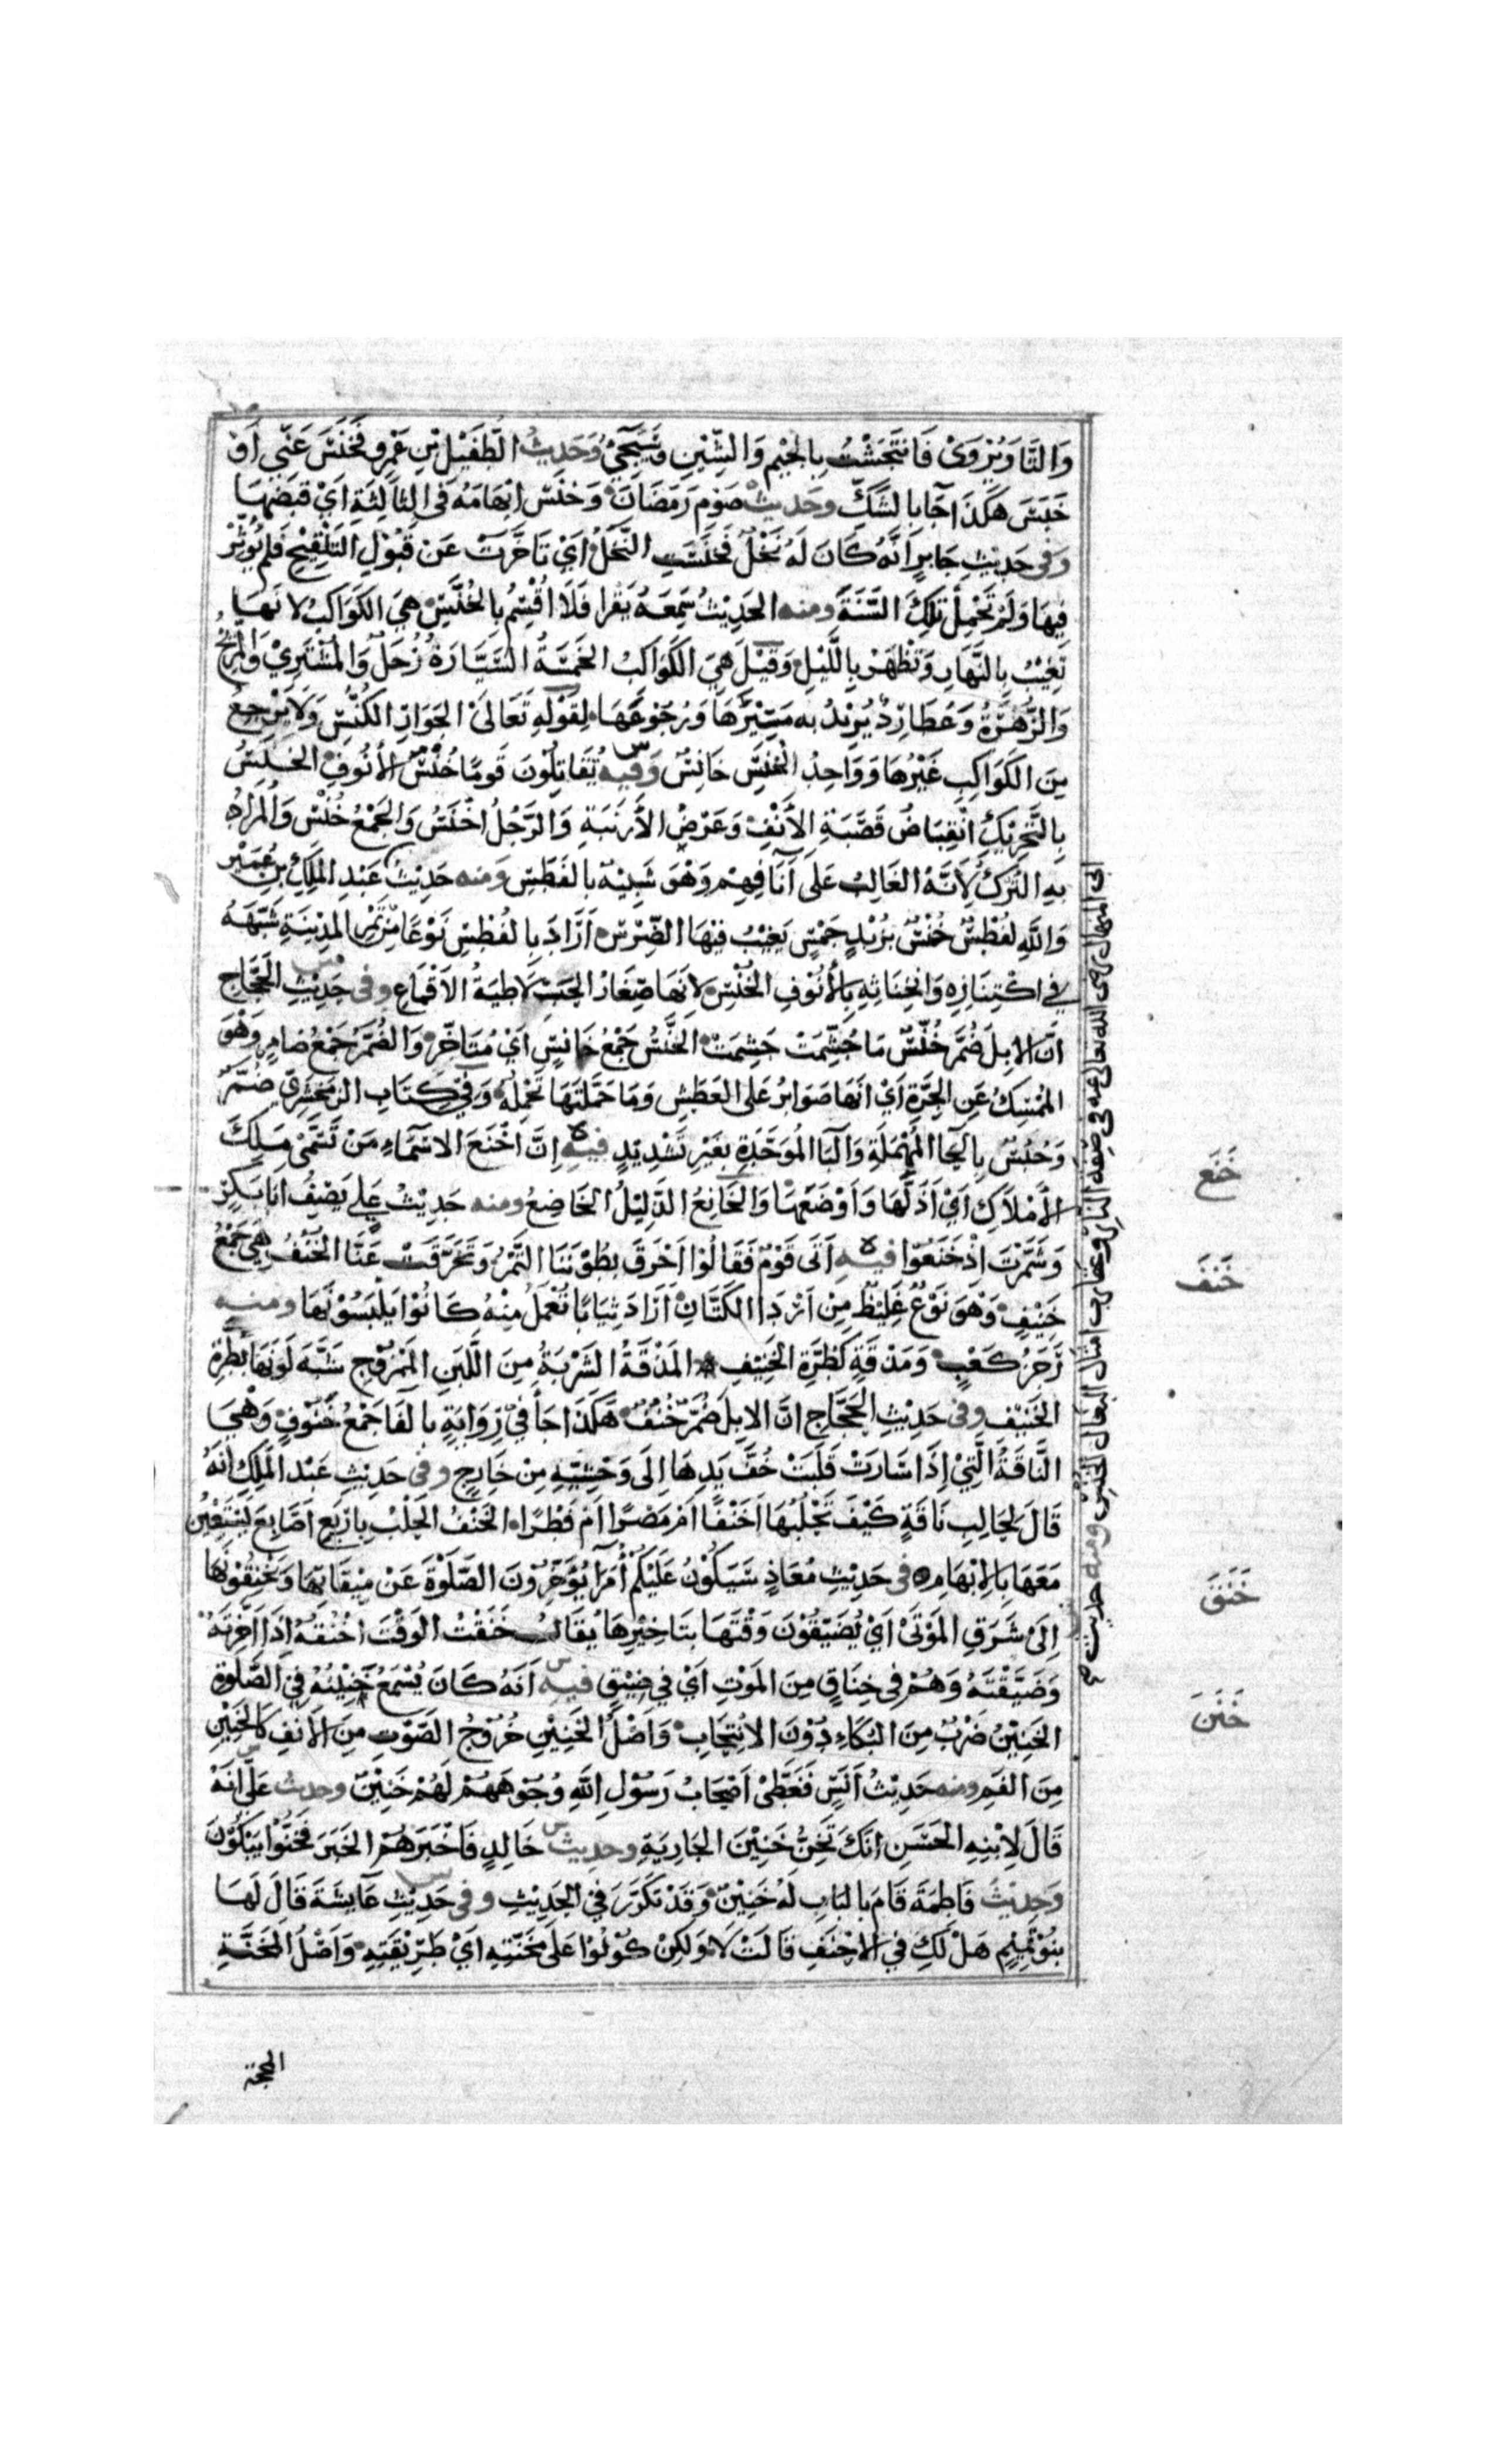 وَالتَّا وَيُرْوَى فَانْتَجَشْتُ بِالْجِيْمِ وَالشِّيْنِ وَسَيَجِيْءُ وَحَدِيْثُ الطُّفَيْلِ بْنِ عَمْرٍو فَخَنَسَ عَنِّي أَوْ
خَبَسَ هَكَذَا جَا بِالشَّكِّ وحَديثُ صَوْمِ رَمَضَانَ وَخَنَسَ اِبْهَامَهُ فِي الثَّالِثَةِ اَيْ قَبَضَهَا
وَفي حَدِيْثِ جَابِرٍ اَنَّهُ كَانَ لَهُ نَخْلٌ فَخَنَسَتِ النَّخْلُ اَيْ تَاَخَّرَتْ عَنْ قَبُوْلِ التَّلْقِيْحِ فَلَمْ يُؤَثِّرْ
فِيهَا وَلَمْ تَحْمِلْ تِلْكَ السَّنَةَ ومنه الحَدِيْثُ سَمِعَهُ يَقْرَا فَلَا اُقْسِمُ بِالخُنَّسِ هِيَ الكَوَاكِبُ لانَّهَا
تَغِيْبُ بِالنَّهَارِ وَتَظْهَرُ بِاللَّيْلِ وَقِيْلَ هِيَ الكَوَاكِبُ الخَمْسَةُ السَّيَّارَةُ زُحَلُ وَالمُشْتَرِيْ وَالمِرِّيْخُ
وَالزُّهَرَةُ وَعُطَارِدُ يُرِيْدُ بِهِ مَسِيْرَهَا وَرُجُوْعَهَا لِقَوْلِهِ تَعَالَى الجَوَارِ الكُنَّسِ وَلَا يَرْجِعُ
مِنَ الكَوَاكِبِ غَيْرُهَا وَوَاحِدُ الخُنَّسِ خَانِسٌ وَفيه تُقَاتِلُوْنَ قَومًا خُنْسَ الأُنُوفِ الخَنَسُ
بِالتَّحْرِيْكِ انْقِبَاضُ قَصَبَةِ الأَنْفِ وَعَرْضُ الأَرْنَبَةِ وَالرَّجُلُ اَخْنَسُ وَالجَمْعُ خُنْسٌ وَالمُرَادُ
بِهِ التُّرْكُ لِأَنَّهُ الغَالِبُ عَلَى آنَافِهِمْ وَهْوَ شَبِيْهٌ بِالفَطَسِ وَمنه حَدِيْثُ عَبْدِ المَلِكِ بْنِ عُمَيْرٍ
وَاللَّهِ لفُطْسٌ خُنْسٌ بزُبْدٍ جَمْسٍ يَغِيْبُ فِيْهَا الضِّرْسُ اَرَادَ بِالفُطْسِ نَوْعًا مِنْ تَمْرِ المَدِيْنَةِ شَبَّهَهُ
فِي اكْتِنَازِهِ وَانْحِنَائِهِ بِالأُنُوْفِ الخُنْسِ لاِنَّهَا صِغَارُ الحَبِّ لَاطِيَةُ الاَقْمَاعِ وفي حَدِيْثِ الحَجَّاجِ
اَنَّ الاِبِلَ ضُمَّزٌ خُنَّسٌ مَا جُشِّمَتْ جَشِمَتْ الخُنَّسُ جَمْعُ خَانِسٍ اَيْ مُتَاَخِّرٍ وَالضُّمَّزُ جَمْعُ ضَامِزٍ وَهْوَ
المُمْسِكُ عَنِ الجِرَّةِ اَيْ اَنَّهَا صَوَابِرُ عَلَى العَطَشِ وَمَا حَمَّلْتَهَا تَحْمِلُهُ وَفِي كِتَابِ الزَّمَخْشَرِيِّ ضُمَّرٌ
وَحُبُسٌ بِالحَا المُهْمَلَةِ وَالبَا المُوَحَّدَةِ بِغَيْرِ تَشْدِيْدٍ فيه اِنَّ اَخْنَعَ الاَسْمَاءِ مَنْ تَسَمَّى مَلِكَ
الأَمْلَاكِ اَيْ اَذَلَّهَا وَاَوْضَعَهَا وَالخَانِعُ الذَّلِيْلُ الخَاضِعُ ومنه حَدِيْثُ عَلِي يَصِفُ اَبَا بَكْرٍ
وَشَمَّرْتَ اِذْ خَنَعُوْا فيه اَتَى قَوْمٌ فَقَالُوْا اَحْرَقَ بُطُوْنَنَا التَّمْرُ وَتَخَرَّقَتْ عَنَّا الخُنُفُ هِيَ جَمْعُ
خَنِيْفٍ وَهْوَ نَوْعٌ غَلِيْظٌ مِنْ اَرْدَا الكَتَّانِ اَرَادَ ثِيَابًا تُعْمَلُ مِنْهُ كَانُوْا يَلْبَسُوْنَهَا ومنه
رَجَزُ كَعْبٍ وَمَذْقَةٍ كَطُرَّةِ الخَنِيْفِ المَذْقَةُ الشَّرْبَةُ مِنَ اللَّبَنِ المَمْزُوْجِ شَبَّهَ لَوْنَهَا بِطُرَّةِ
الخَنِيْفِ وفي حَدِيْثِ الحَجَّاجِ انَّ الاِبِلَ ضُمَّزٌ خُنُفٌ هَكَذَا جَا فِي رِوَايَةٍ بِالفَا جَمْعُ خَنُوْفٍ وَهْيَ
النَّاقَةُ الَّتِيْ اِذَا سَارَتْ قَلَبَتْ خُفَّ يَدِهَا اِلَى وَحْشِيِّهِ مِنْ خَارِجٍ وفي حَدِيْثِ عَبْدِ المَلِكِ اَنَّهُ
قَالَ لِحَالِبِ نَاقَةٍ كَيْفَ تَحْلُبُهَا اَخَنْفًا اَمْ مَصْرًا اَمْ فَطْرًا الخَنْفُ الحَلْبُ بِاَرْبَعِ اَصَابِعَ يَسْتَعِيْنُ
مَعَهَا بِالاِبْهَامِ في حَدِيْثِ مُعَاذٍ سَيَكُوْنُ عَلَيْكُمْ اُمَرَا يُؤَخِّرُوْنَ الصَّلَوةَ عَنْ مِيْقَاتِهَا وَيَخْنُقُوْنَهَا
اِلَى شَرَقِ المَوْتَى اَيْ يُضَيِّقُوْنَ وَقْتَهَا بِتَاخِيْرِهَا يُقَالُ خَنَقْتُ الوَقْتَ اَخْنُقُهُ اِذَا اَخَّرْتَهُ
وَضَيَّقْتَهُ وَهُمْ فِي خِنَاقٍ مِنَ المَوْتِ اَيْ فِي ضِيْقٍ فيه اَنَّهُ كَانَ يُسْمَعُ خَنِيْنُهُ فِي الصَّلَوةِ
الخَنِيْنُ ضَرْبٌ مِنَ البُكَاءِ دُوْنَ الاِنْتِحَابِ وَاَصْلُ الخَنِيْنِ خُرُوْجُ الصَّوْتِ مِنَ الاَنْفِ كَالحَنِيْنِ
مِنَ الفَمِ ومنه حَدِيْثُ اَنَسٍ فَغَطَّى اَصْحَابُ رَسُوْلِ اللَّهِ وُجُوْهَهُمْ لَهُمْ خَنِيْنٌ وحديثُ عَلِي اَنَّهُ
قَالَ لِابْنِهِ الحَسَنِ اِنَّكَ تَخِنُّ خَنِيْنَ الجَارِيَةِ وحديثُ خَالِدٍ فَاَخْبَرَهُمُ الخَبَرَ فَخَنُّوْا يَبْكُوْنَ
وَحديْثُ فَاطِمَةَ قَامَ بِالبَابِ لَهُ خَنِيْنٌ وَقَدْ تَكَرَّرَ فِي الحَدِيْثِ وفي حَدِيْثِ عَايِشَةَ قَالَ لَهَا
بَنُوْ تَمِيْمٍ هَلْ لَكِ فِي الاَحْنَفِ قَالَتْ لَا وَلَكِنْ كُوْنُوْا عَلَى مَخَنَّتِهِ اَيْ طَرِيْقَتِهِ وَاَصْلُ المَخَنَّةِ
المحجة
خَنَعَ
خَنَفَ
خَنَقَ
خَنَنَ
ابى المنهال رضى الله تعالى عنه فى صفة النار وعقارب امثال البغال الخنس ومنه حديث